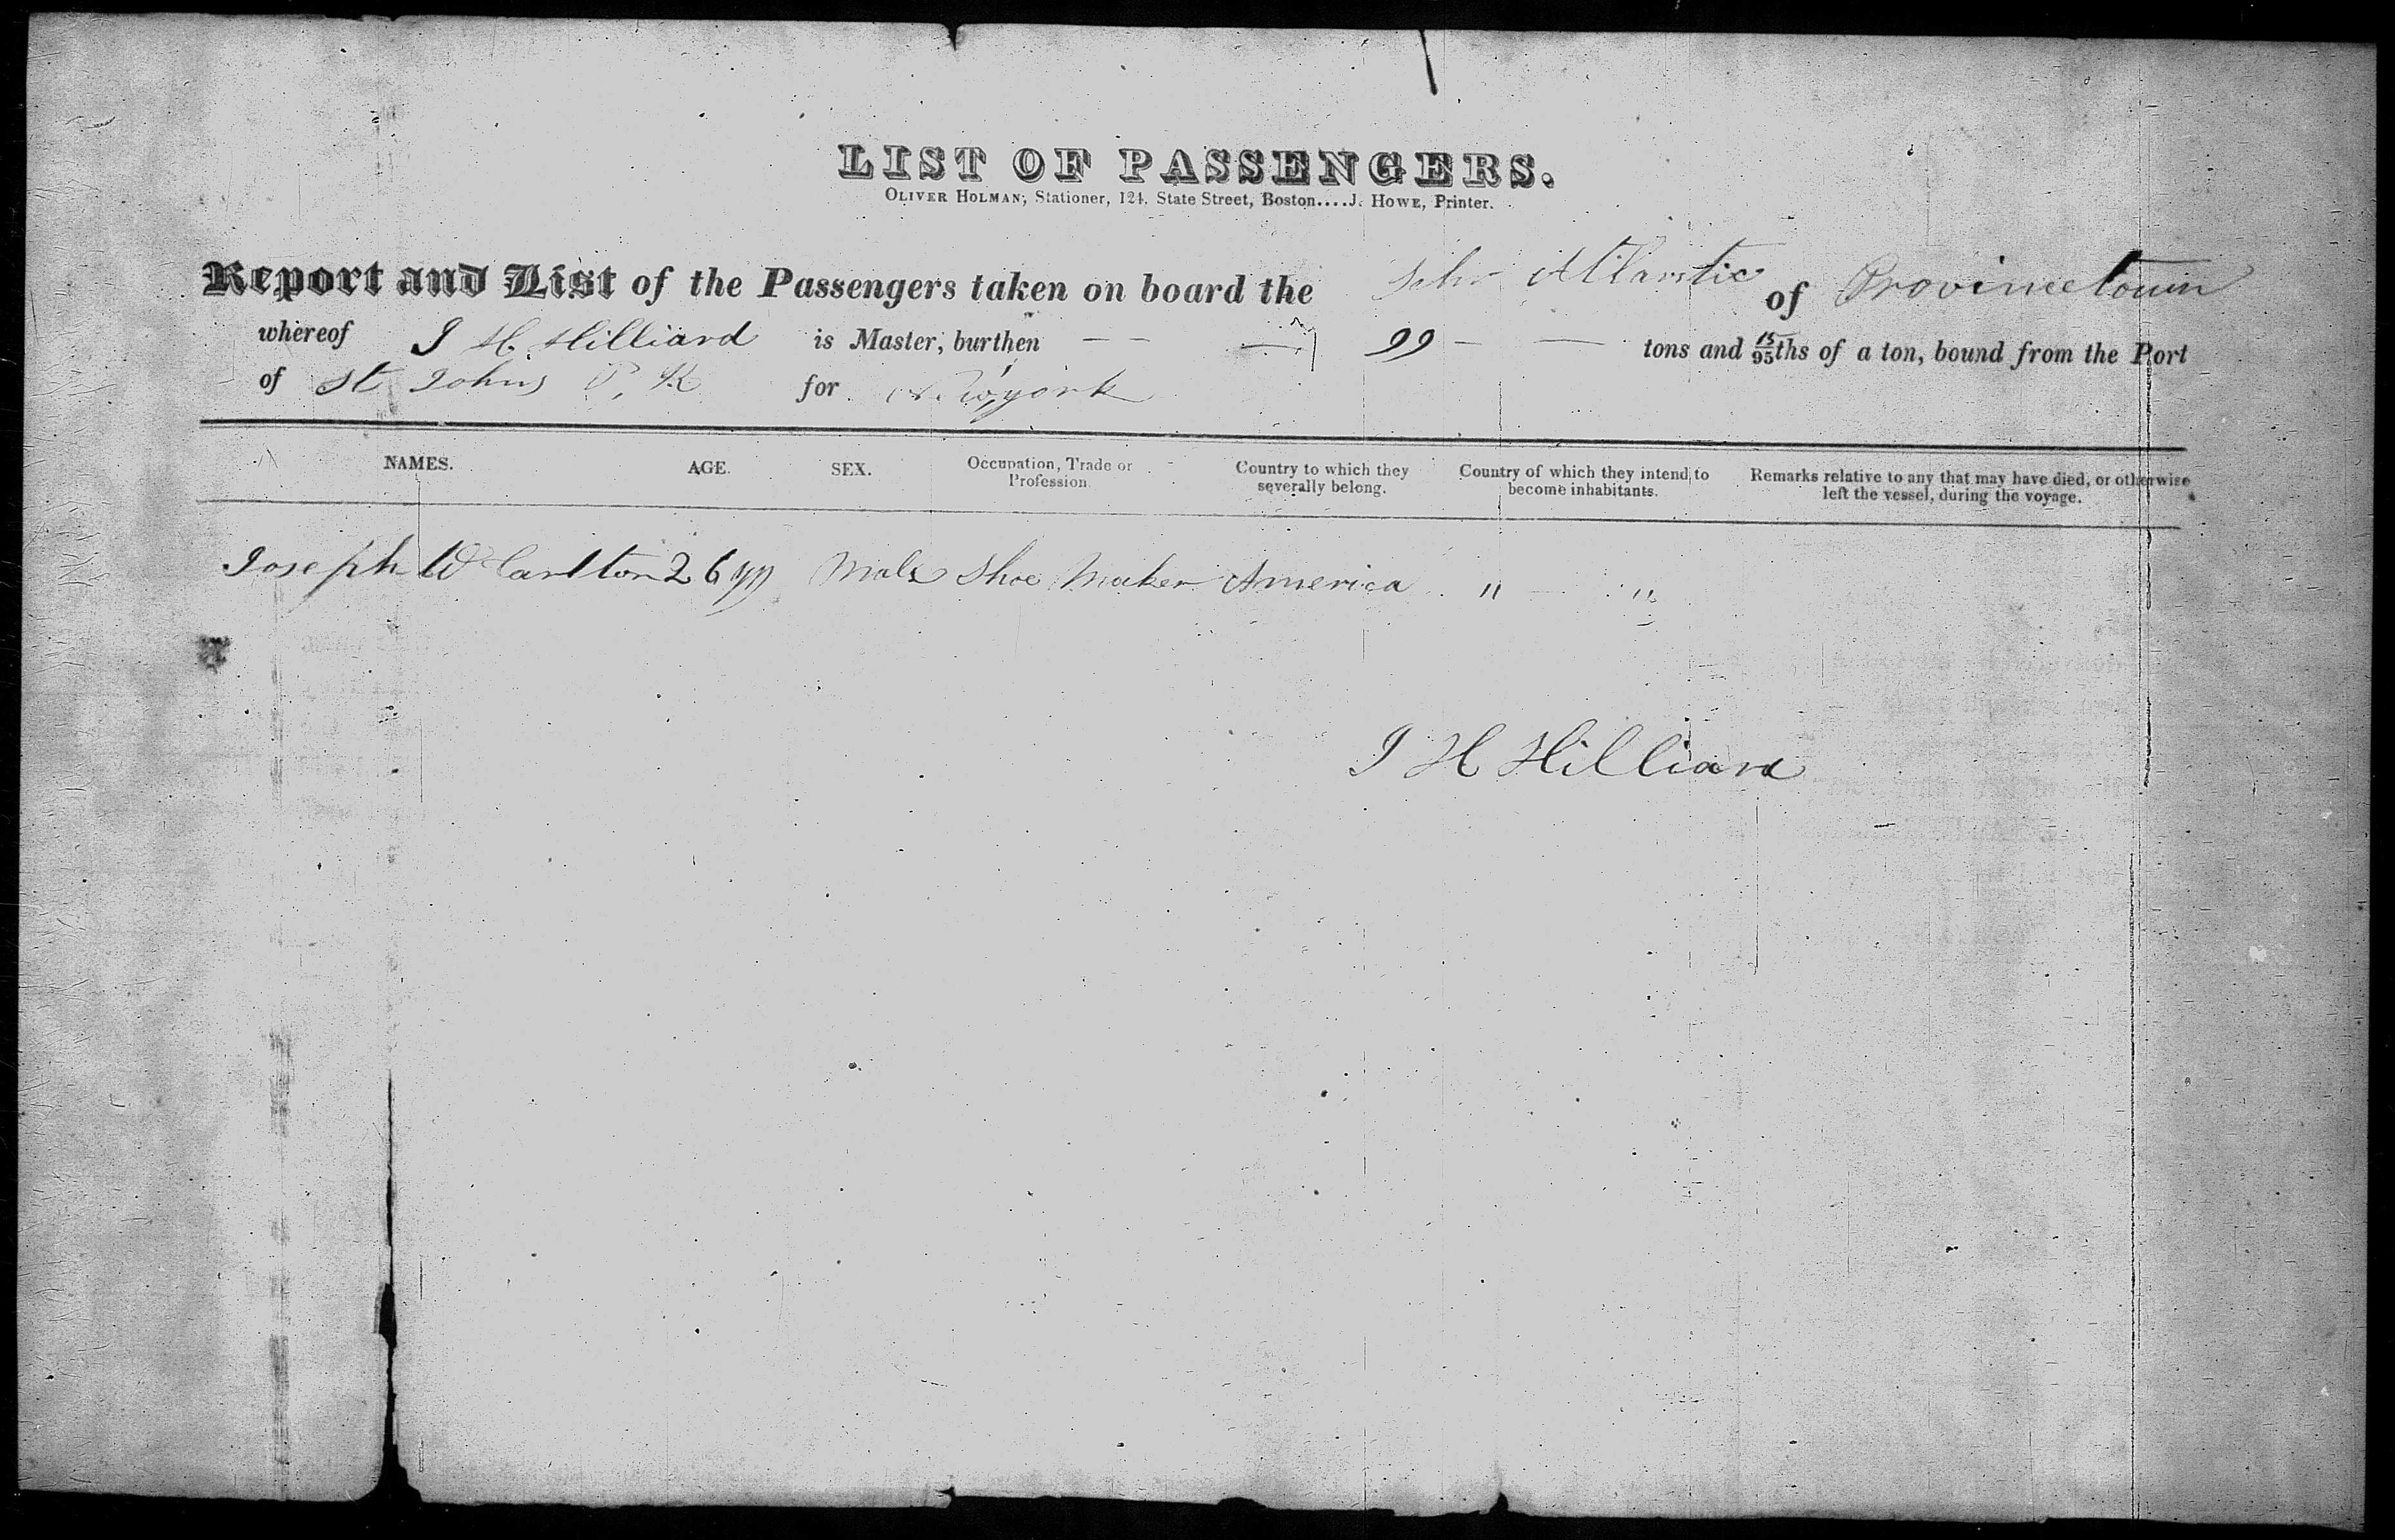 LIST OF PASSENGERS.
OLIVER HOLMAN, Stationer, 124, State Street, Boston....J. HOWE, Printer.
Report and List of the Passengers taken on board the Schr Atlantic of Provincetown
whereof J H Hilliard is Master, burthen — — — 99 — — tons and 15/95ths of a ton, bound from the Port
of St Johns P. R for Newyork
NAMES. AGE. SEX. Occupation, Trade or Profession. Country to which they severally belong. Country of which they intend to become inhabitants. Remarks relative to any that may have died, or otherwise left the vessel, during the voyage.
Joseph W Carlton 26 Male Shoe Maker America " — "
J H Hilliard